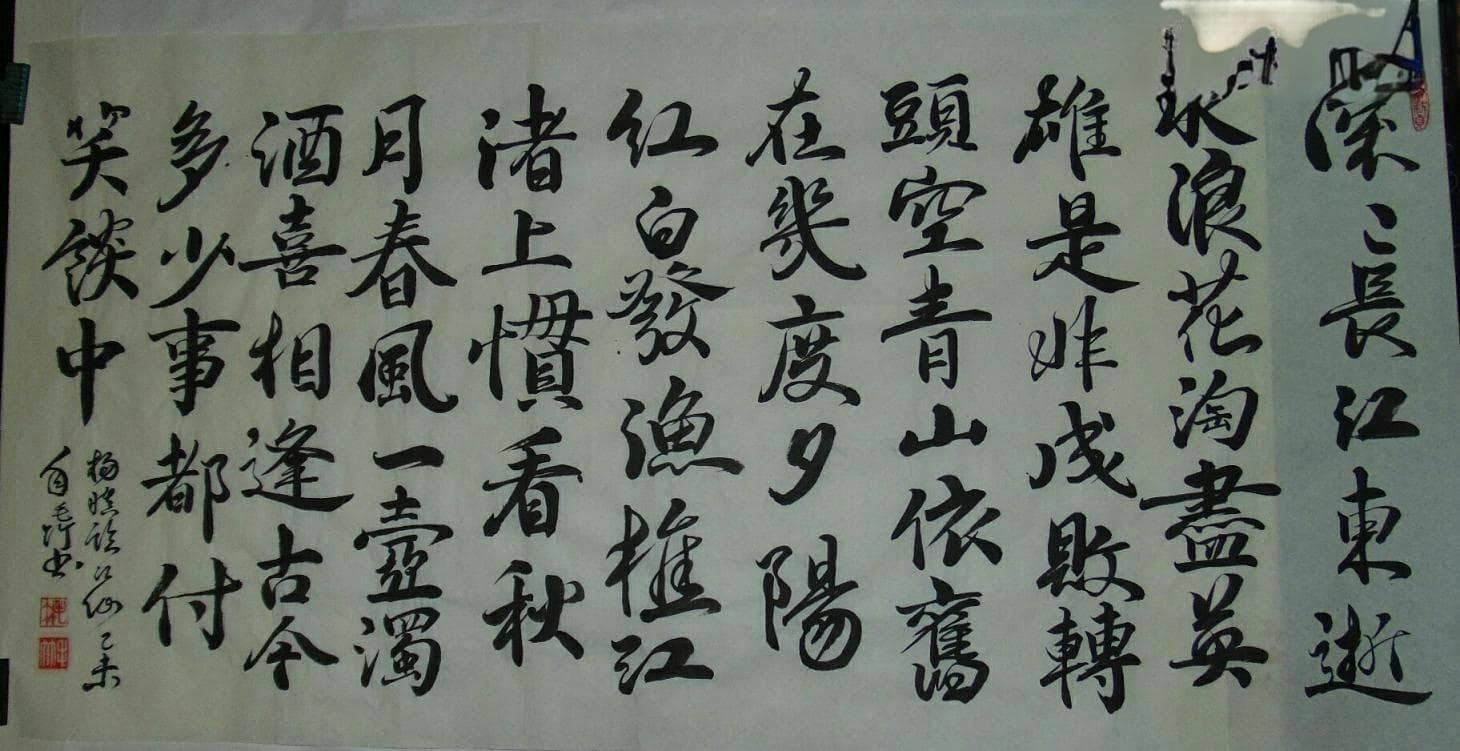 深〻長江東逝
水浪花淘盡英
雄是非成敗轉
頭空青山依舊
在幾度夕陽
紅白發漁樵江
渚上慣看秋
月春風一壺濁
酒喜相逢古今
多少事都付
笑談中
楊慎臨江仙乙未
書